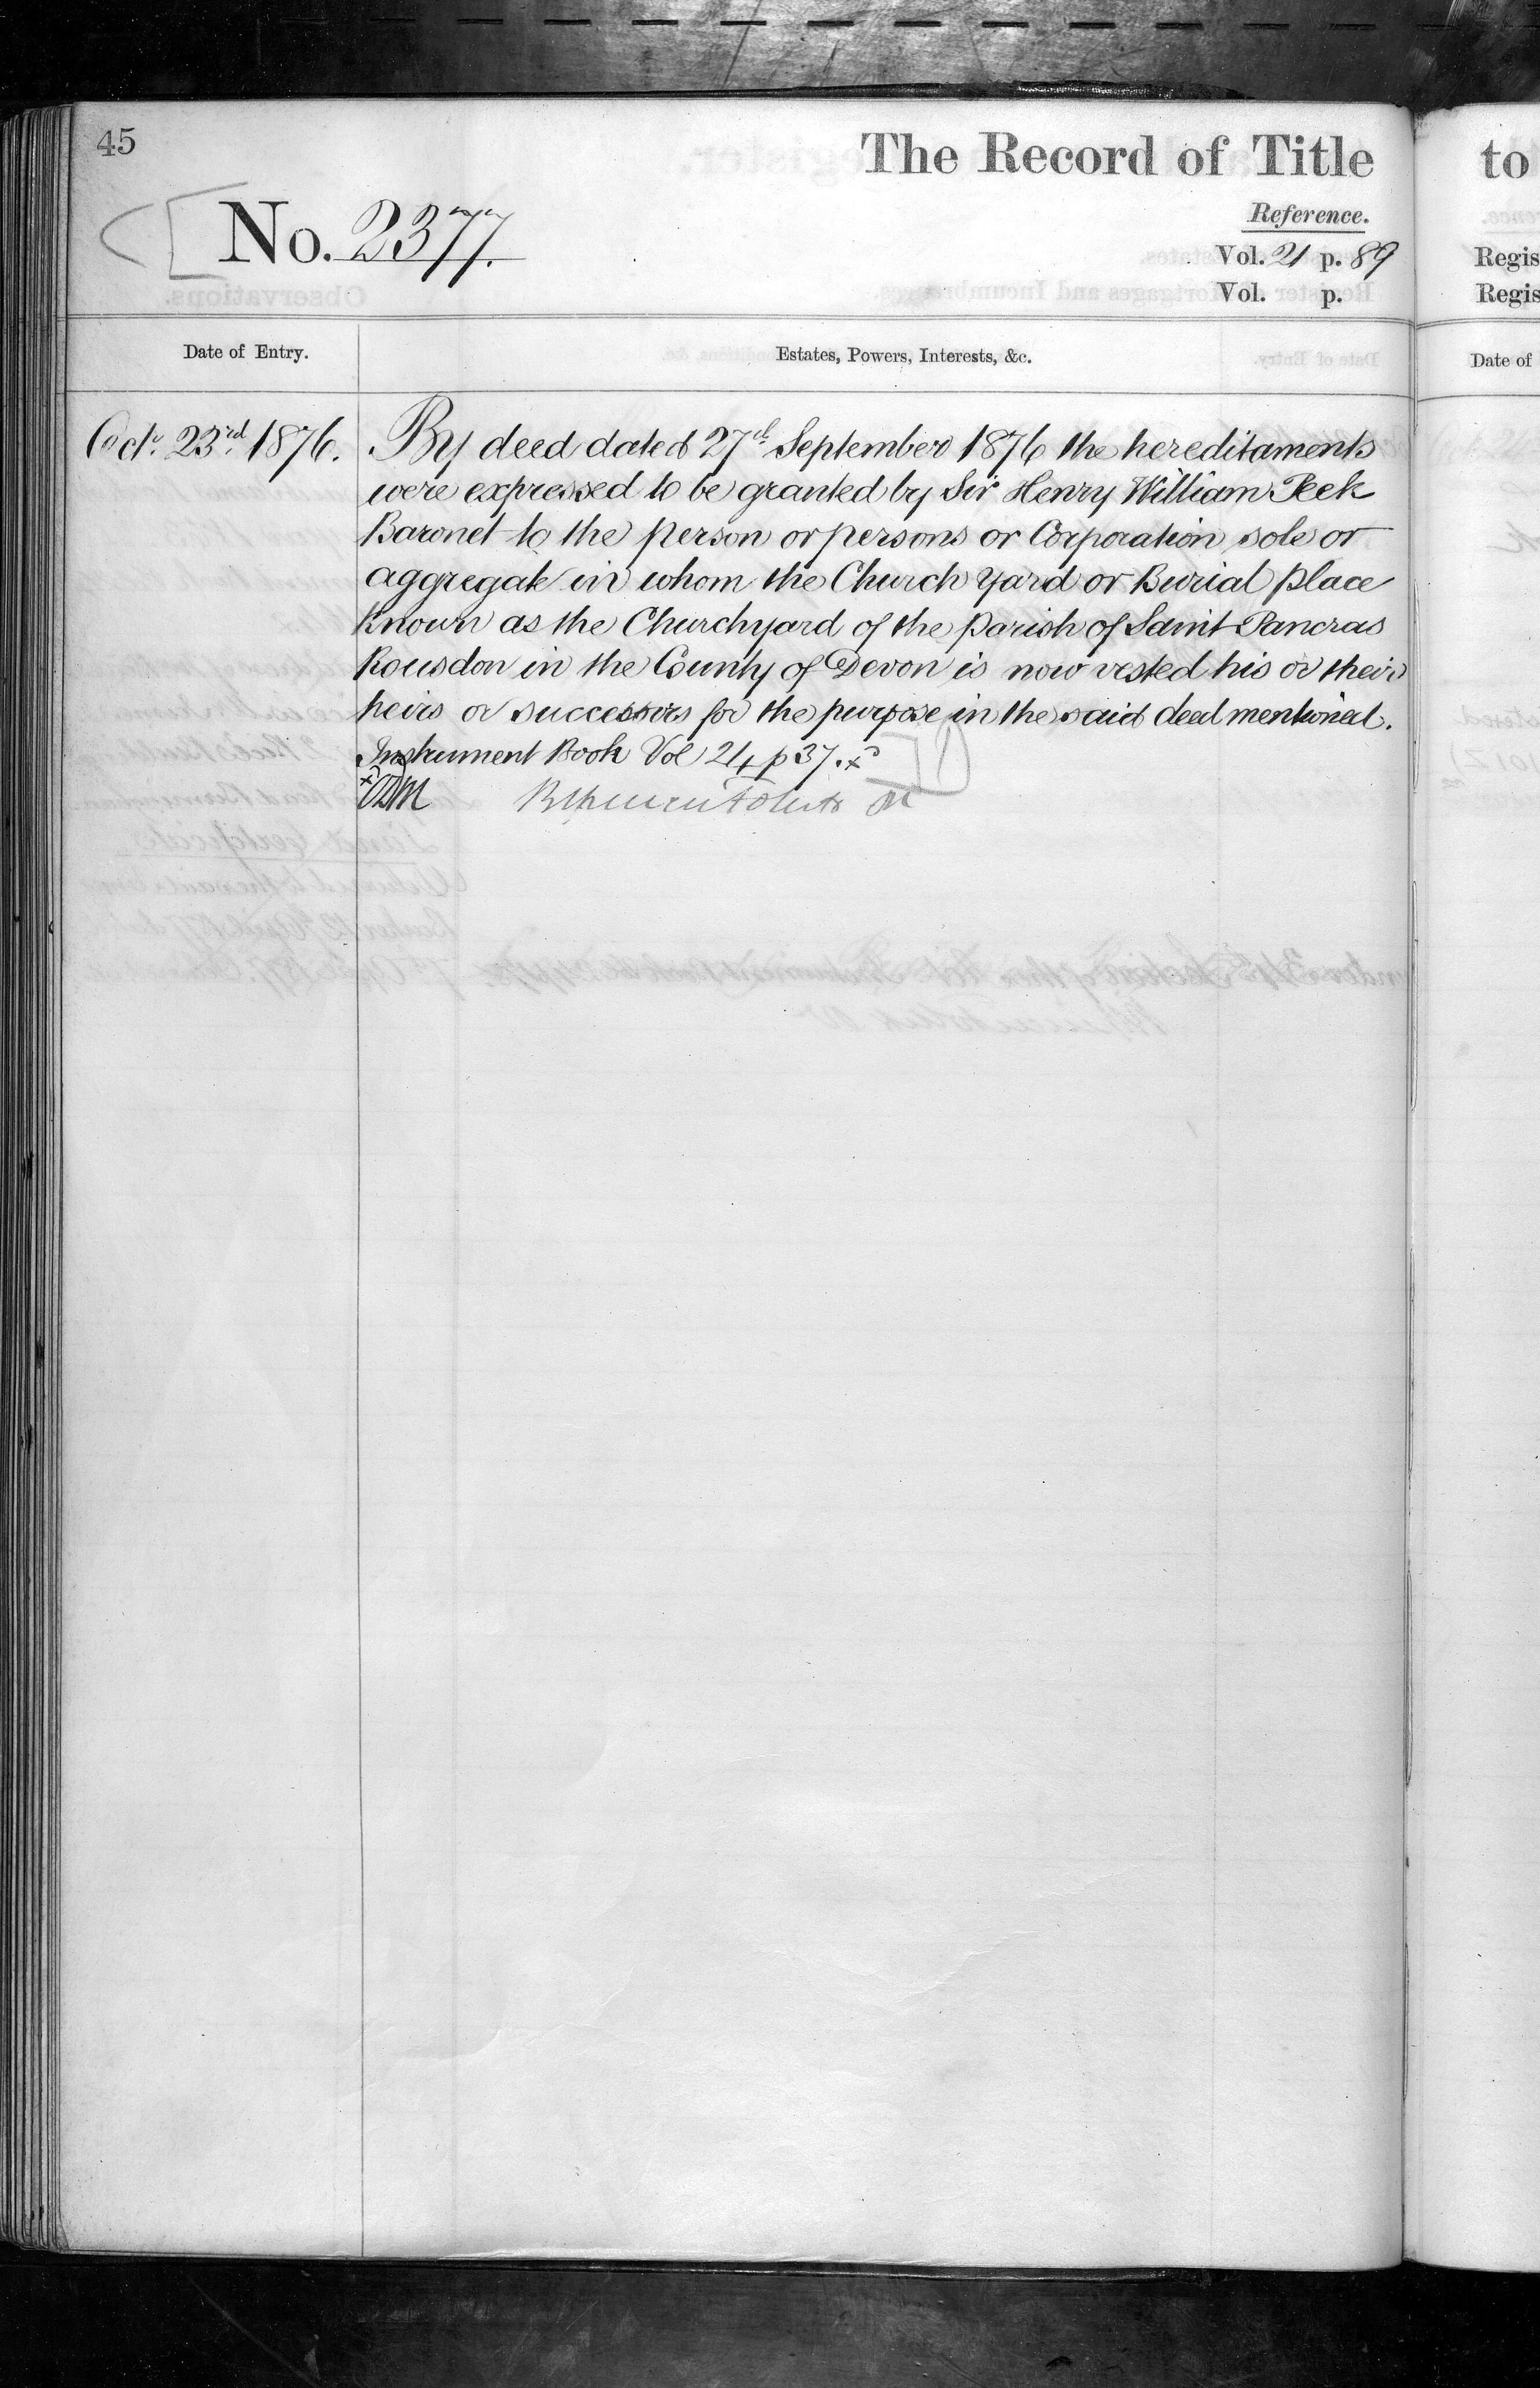 45
The Record of Title
No. 2377.
Reference.
Vol. 21 p. 89
Vol. p.
Date of Entry.
Estates, Powers, Interests, &c.
Oct. 23rd 1876.
By deed dated 27th September 1876 the hereditaments
were expressed to be granted by Sir Henry William Peek
Baronet to the person or persons or Corporation sole or
aggregate in whom the Church yard or Burial place
known as the Churchyard of the parish of Saint Pancras
Rousdon in the County of Devon is now vested his or their
heirs or successors for the purpose in the said deed mentioned.
Instrument Book Vol 24 p 37. x
x
to
Regis
Regis
Date of